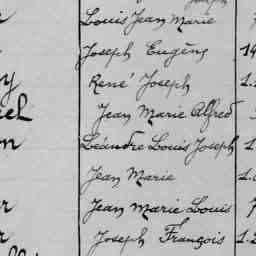 Joseph
Louis Jean Marie
Joseph Eugène 19
René Joseph 1.
Jean Marie Alfred
Léandre Louis Joseph 1
Jean Marie 1.
Jean Marie Louis 7
Joseph François 1.2